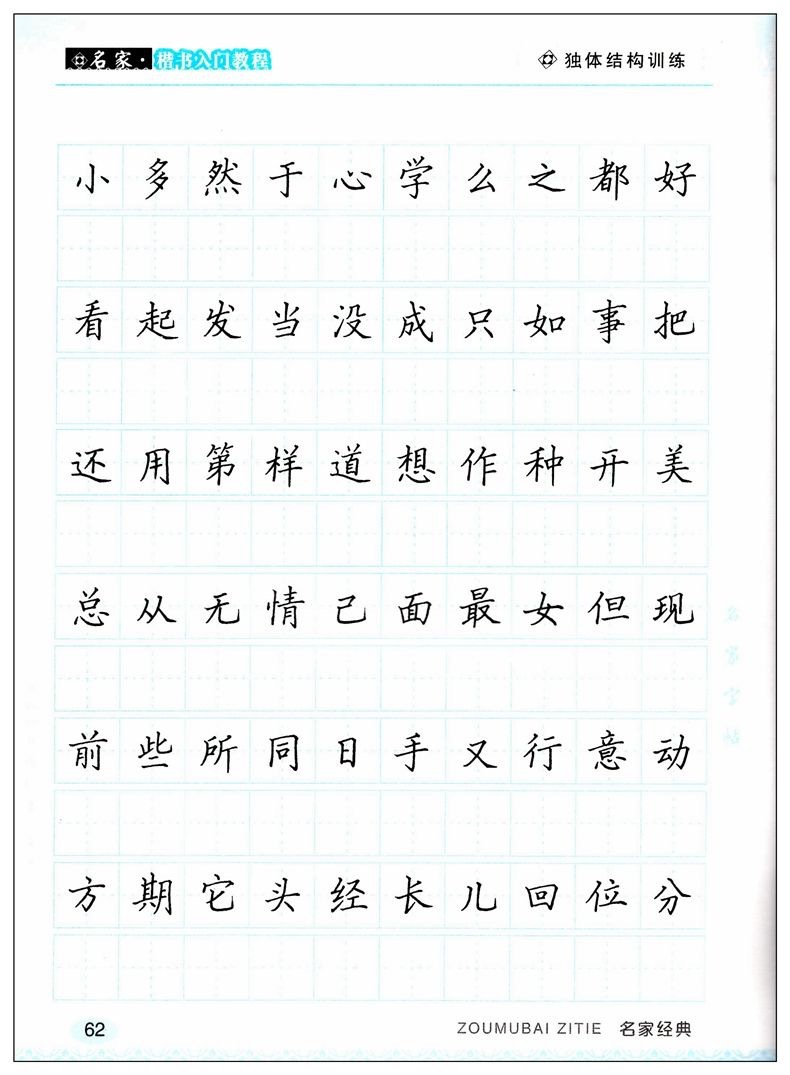 名家·楷书入门教程
独体结构训练
小多然于心学么之都好
看起发当没成只如事把
还用第样道想作种开美
总从无情己面最女但现
前些所同日手又行意动
方期它头经长儿回位分
名家字帖
62
ZOUMUBAI ZITIE 名家经典